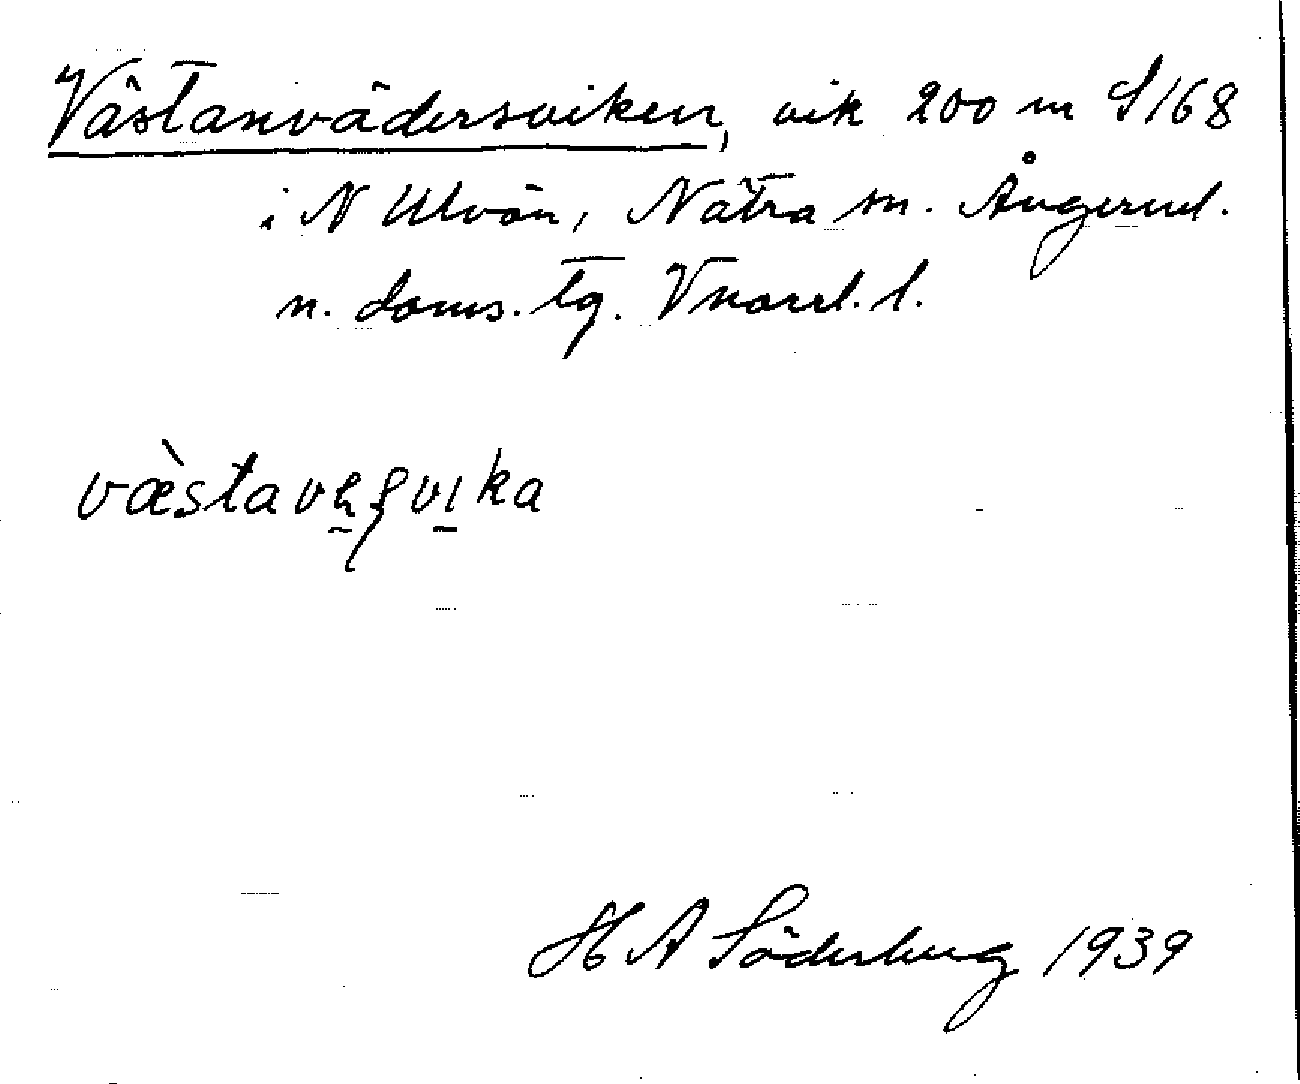 Västanvädersviken, vik 200 m S 168
i N Ulvön, Nätra sn. Ångerml.
n. doms. tg. Vnorrl. l.
væ̀stave̠ʂvı̠ka
H A Söderberg 1939